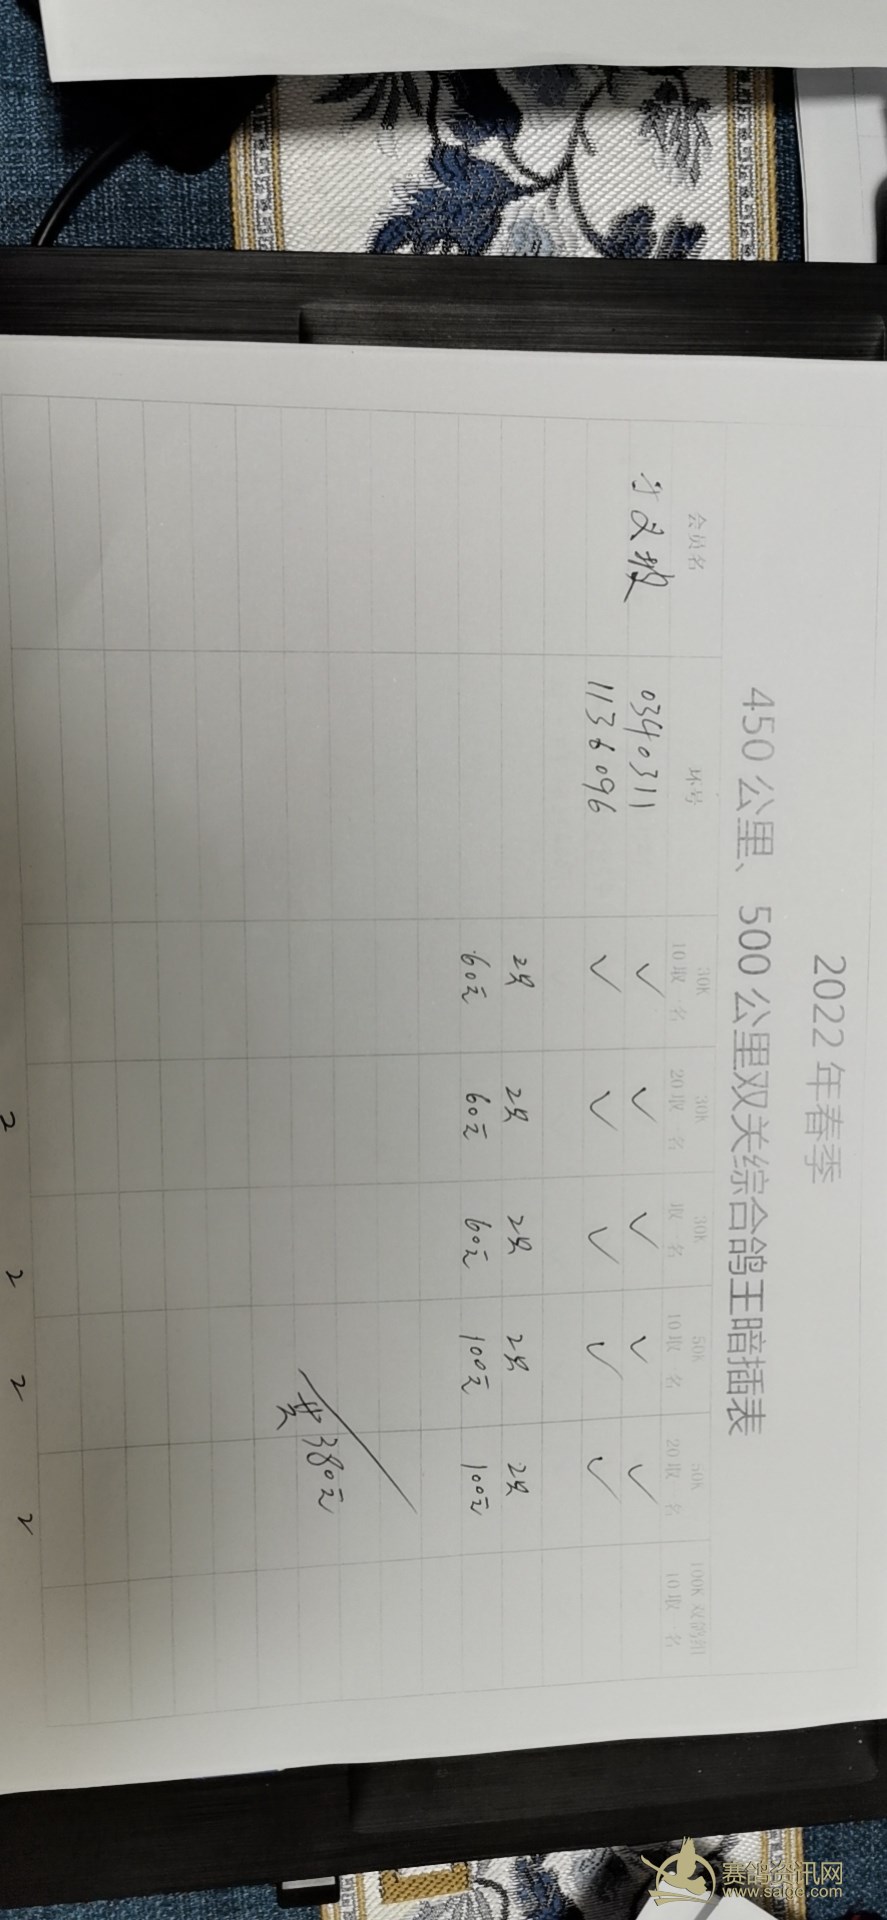 2022 年春季
450 公里、500 公里双关综合鸽王暗插表
会员名 环号 30K 30K 30K 50K 50K 100K 双鸽组
10取一名 20取一名 取一名 10取一名 20取一名 10取一名
文 0340311 ✓ ✓ ✓ ✓ ✓
1136096 ✓ ✓ ✓ ✓ ✓
2只 2只 2只 2只 2只
60元 60元 60元 100元 100元
共380元
2 2 2 2
赛鸽资讯网
www.saige.com